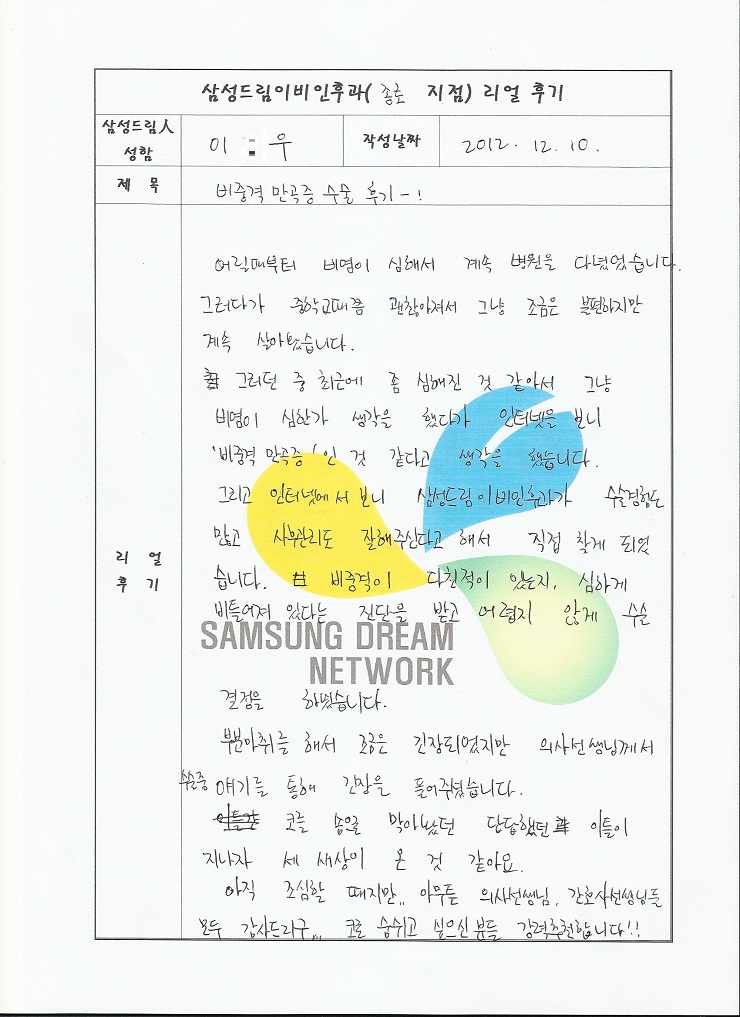 삼성드림이비인후과( 종로 지점) 리얼 후기
삼성드림人
성함
이 우
작성날짜
2012. 12. 10.
제 목
비중격 만곡증 수술 후기-!
어릴때부터 비염이 심해서 계속 병원을 다녔었습니다.
그러다가 중학교때쯤 괜찮아져서 그냥 조금은 불편하지만
계속 살아왔습니다.
그러던 중 최근에 좀 심해진 것 같아서 그냥
비염이 심한가 생각을 했다가 인터넷을 보니
'비중격 만곡증'인 것 같다고 생각을 했습니다.
그리고 인터넷에서 보니 삼성드림이비인후과가 수술경험도
많고 사후관리도 잘해주신다고 해서 직접 찾게 되었
습니다. 비중격이 다친적이 있는지, 심하게
비틀어져 있다는 진단을 받고 어렵지 않게 수술
리 얼
후 기
SAMSUNG DREAM
NETWORK
결정을 하였습니다.
부분마취를 해서 조금은 긴장되었지만 의사선생님께서
수술중 얘기를 통해 긴장을 풀어주셨습니다.
이틀간 코를 솜으로 막아놨던 답답했던 이틀이
지나자 세 새상이 온 것 같아요.
아직 조심할 때지만,, 아무튼 의사선생님, 간호사선생님들
모두 감사드리구,,, 코로 숨쉬고 싶으신분들 강력추천합니다!!